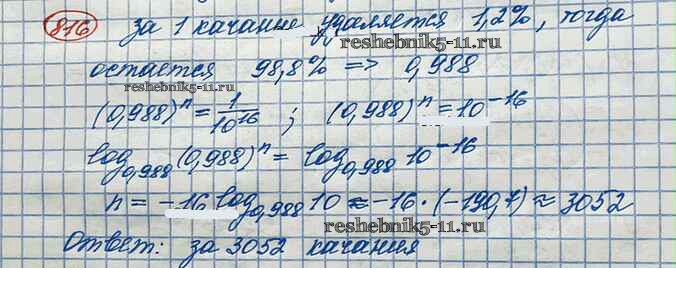 816 за 1 качание удаляется 1,2%, тогда
reshebnik5-11.ru
остается 98,8% => 0,988
reshebnik5-11.ru
(0,988)^n = 1/10^16 ; (0,988)^n = 10^-16
log_0,988 (0,988)^n = log_0,988 10^-16
n = -16 log_0,988 10 ≈ -16 · (-190,7) ≈ 3052
reshebnik5-11.ru
Ответ: за 3052 качания